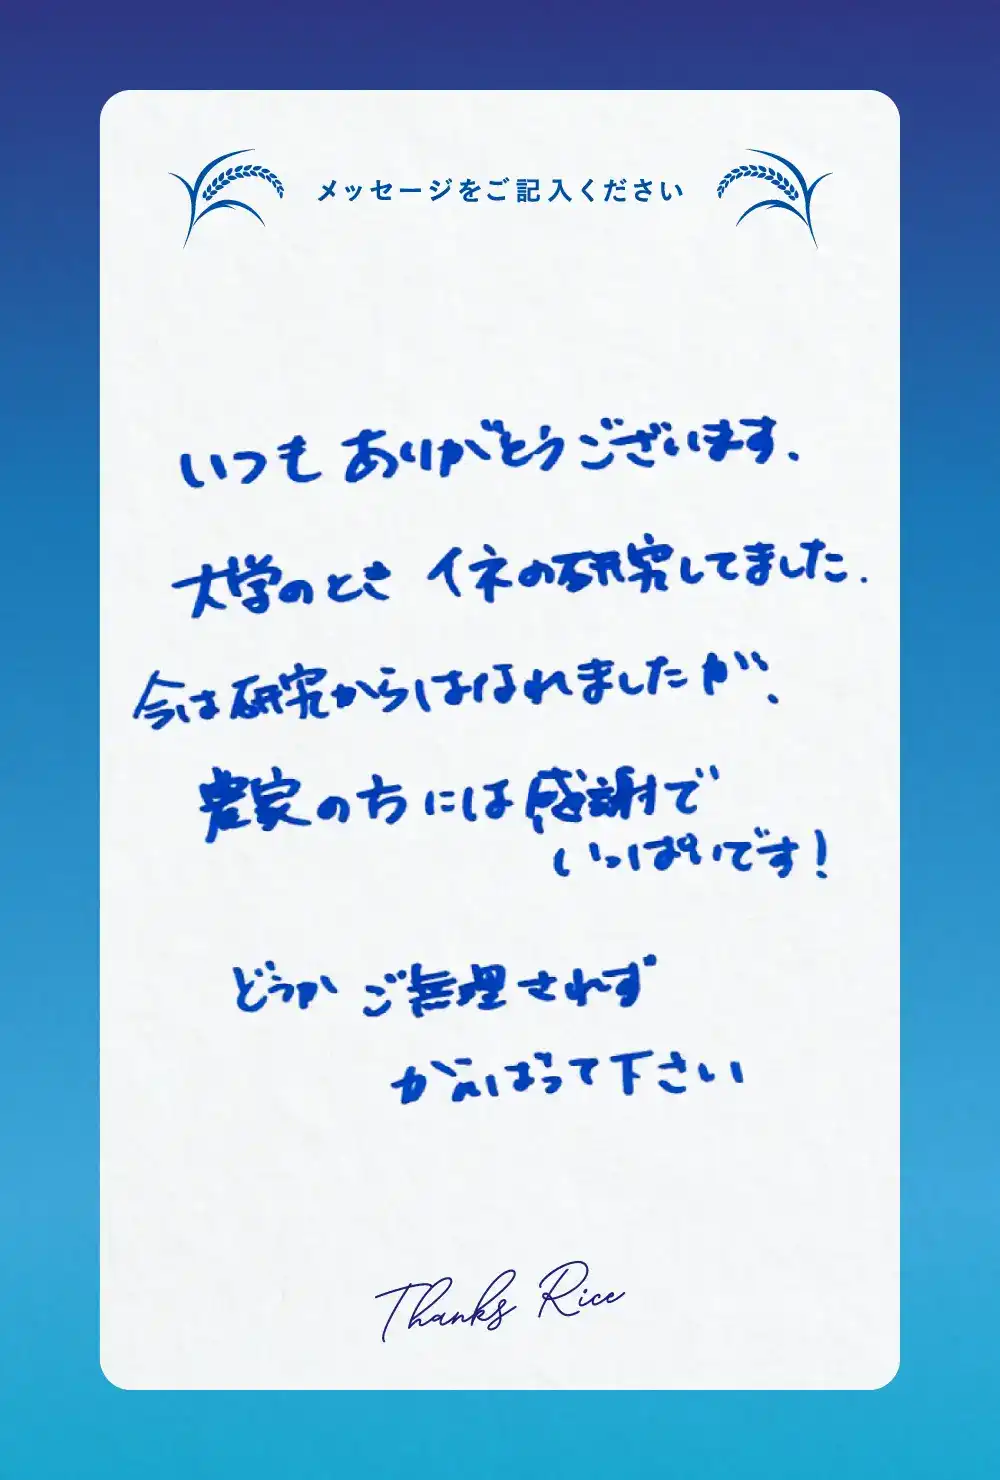 メッセージをご記入ください
いつも ありがとうございます.
大学のとき イネの研究してました.
今は研究からはなれましたが、
農家の方には感謝で
いっぱいです!
どうか ご無理されず
がんばって下さい
Thanks Rice